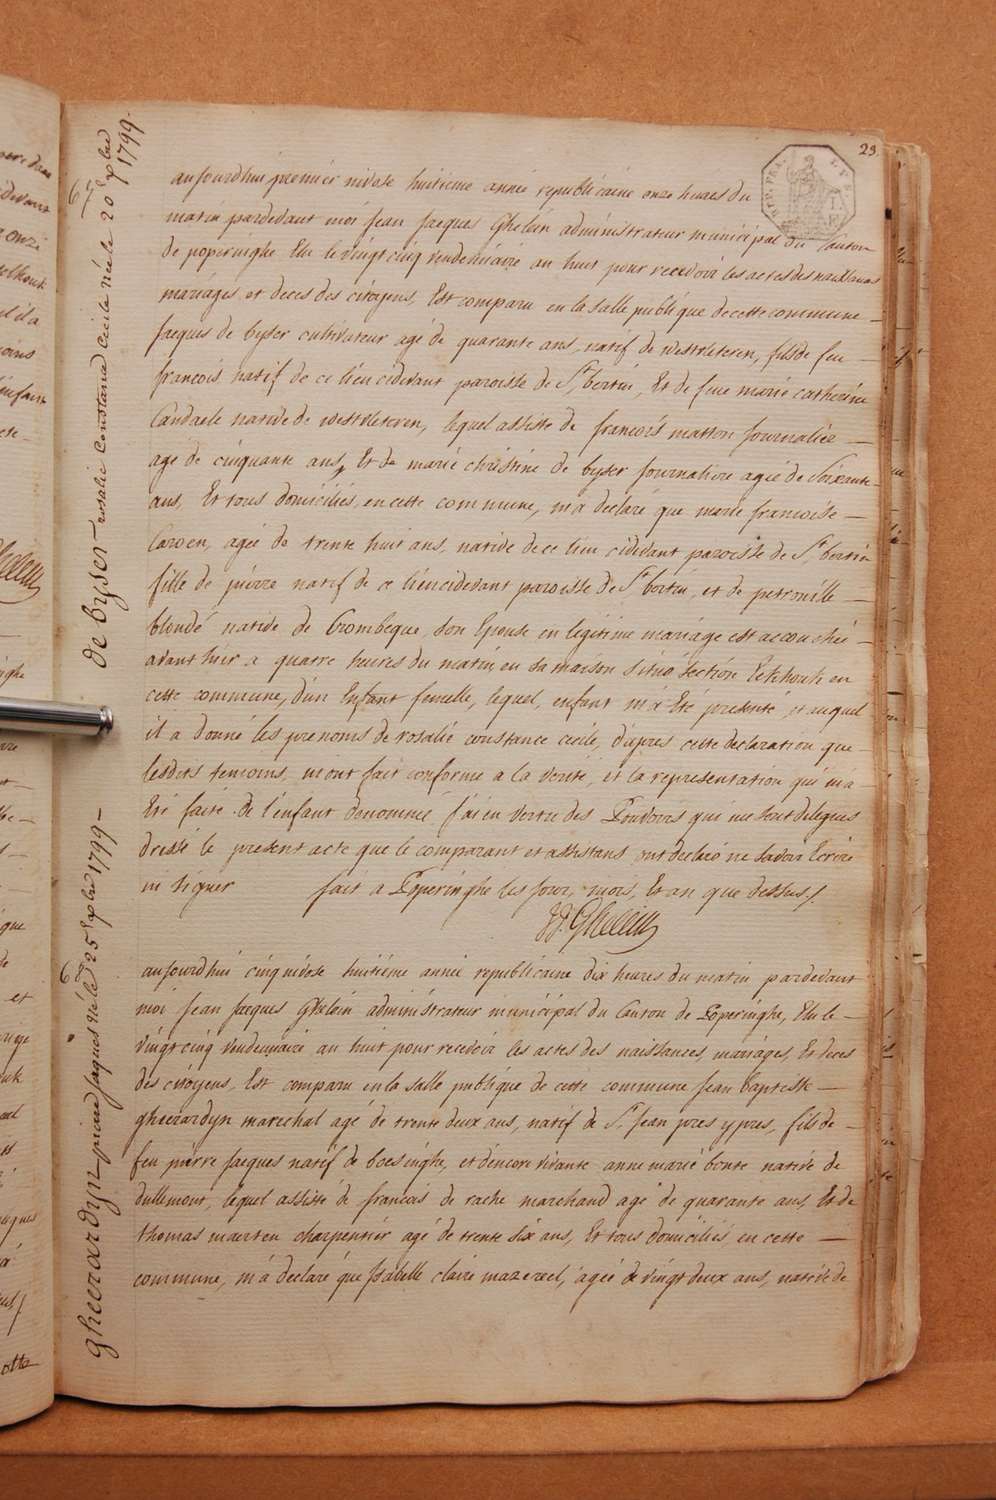 23
67
de byser – rosalie Constance Cecile née le 20 Xbre 1799.
aujourdhui premier nivose huitieme année republicaine onze heures du
matin pardevant moi Jean Jacques Ghelein administrateur municipal du Canton
de poperinghe Elu le vingt cinq vendemiaire an huit pour recevoir les actes des naissances
mariages et deces des citoyens, Est comparu en la salle publique de cette commune –
Jacques de byser cultivateur agé de quarante ans, natif de westvleteren, fils de feu –
francois natif de ce lieu cidevant paroisse de St bertin, Et de feue marie catherine
Candaele native de westvleteren, lequel assisté de francois matton Journalier –
agé de cinquante ans, Et de marie christine de byser journaliere agée de Soixante
ans, Et tous domiciliés en cette commune, m'a declaré que marie francoise –
Caroen, agée de trente huit ans, native de ce lieu cidevant paroisse de St bertin
fille de pierre natif de ce lieu cidevant paroisse de St bertin, et de petronille –
blondé native de Crombeque, son Epouse en legitime mariage est accouchée –
avant hier a quatre heures du matin en sa maison située section Eekhoutz en
cette commune, d'un Enfant femelle, lequel enfant m'a Eté presenté, et auquel
il a donné les prenoms de rosalie constance cecile, d'apres cette declaration que
lesdits temoins, m'ont fait conforme a la verité, et la representation qui m'a
Eté faite de l'enfant denommé, j'ai en vertu des Pouvoirs qui me sont delegues
dressé le present acte que le comparant et assistans ont declaré ne savoir Ecrire
ni signer fait a Poperinghe les jour, mois, Et an que dessus /.
JJ. Ghelein
6
gheerardyn pierre jaques né le 25 Xbre 1799 –
aujourdhui cinq nivose huitiéme année republicaine dix heures du matin pardevant
moi Jean Jacques Ghelein administrateur municipal du Canton de Poperinghe, Elu le –
vingt cinq vendemiaire an huit pour recevoir les actes des naissances, mariages, Et deces
des citoyens, Est comparu en la salle publique de cette commune Jean baptiste –
gheerardyn marechal agé de trente deux ans, natif de St Jean pres ypres, fils de –
feu pierre Jacques natif de boesinghe, et d'encore vivante anne marie bonte native de
dullemont, lequel assisté de francois de rache marchand agé de quarante ans, Et de
thomas maerten charpentier agé de trente six ans, Et tous domiciliés en cette –
commune, m'a declaré que Isabelle claire mazereel, agée de vingt deux ans, native de